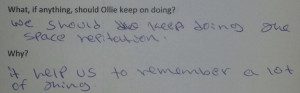 What, if anything, should Ollie keep on doing?
we should keep doing the
space repitation.
Why?
it help us to remember a lot
of thing